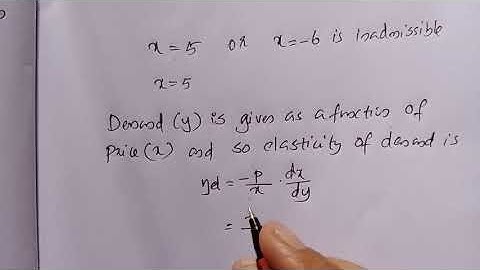 x = 5 or x = -6 is Inadmissible
x = 5
Demand (y) is given as a function of
Price (x) and so elasticity of demand is
ηd = -p/x · dx/dy
=